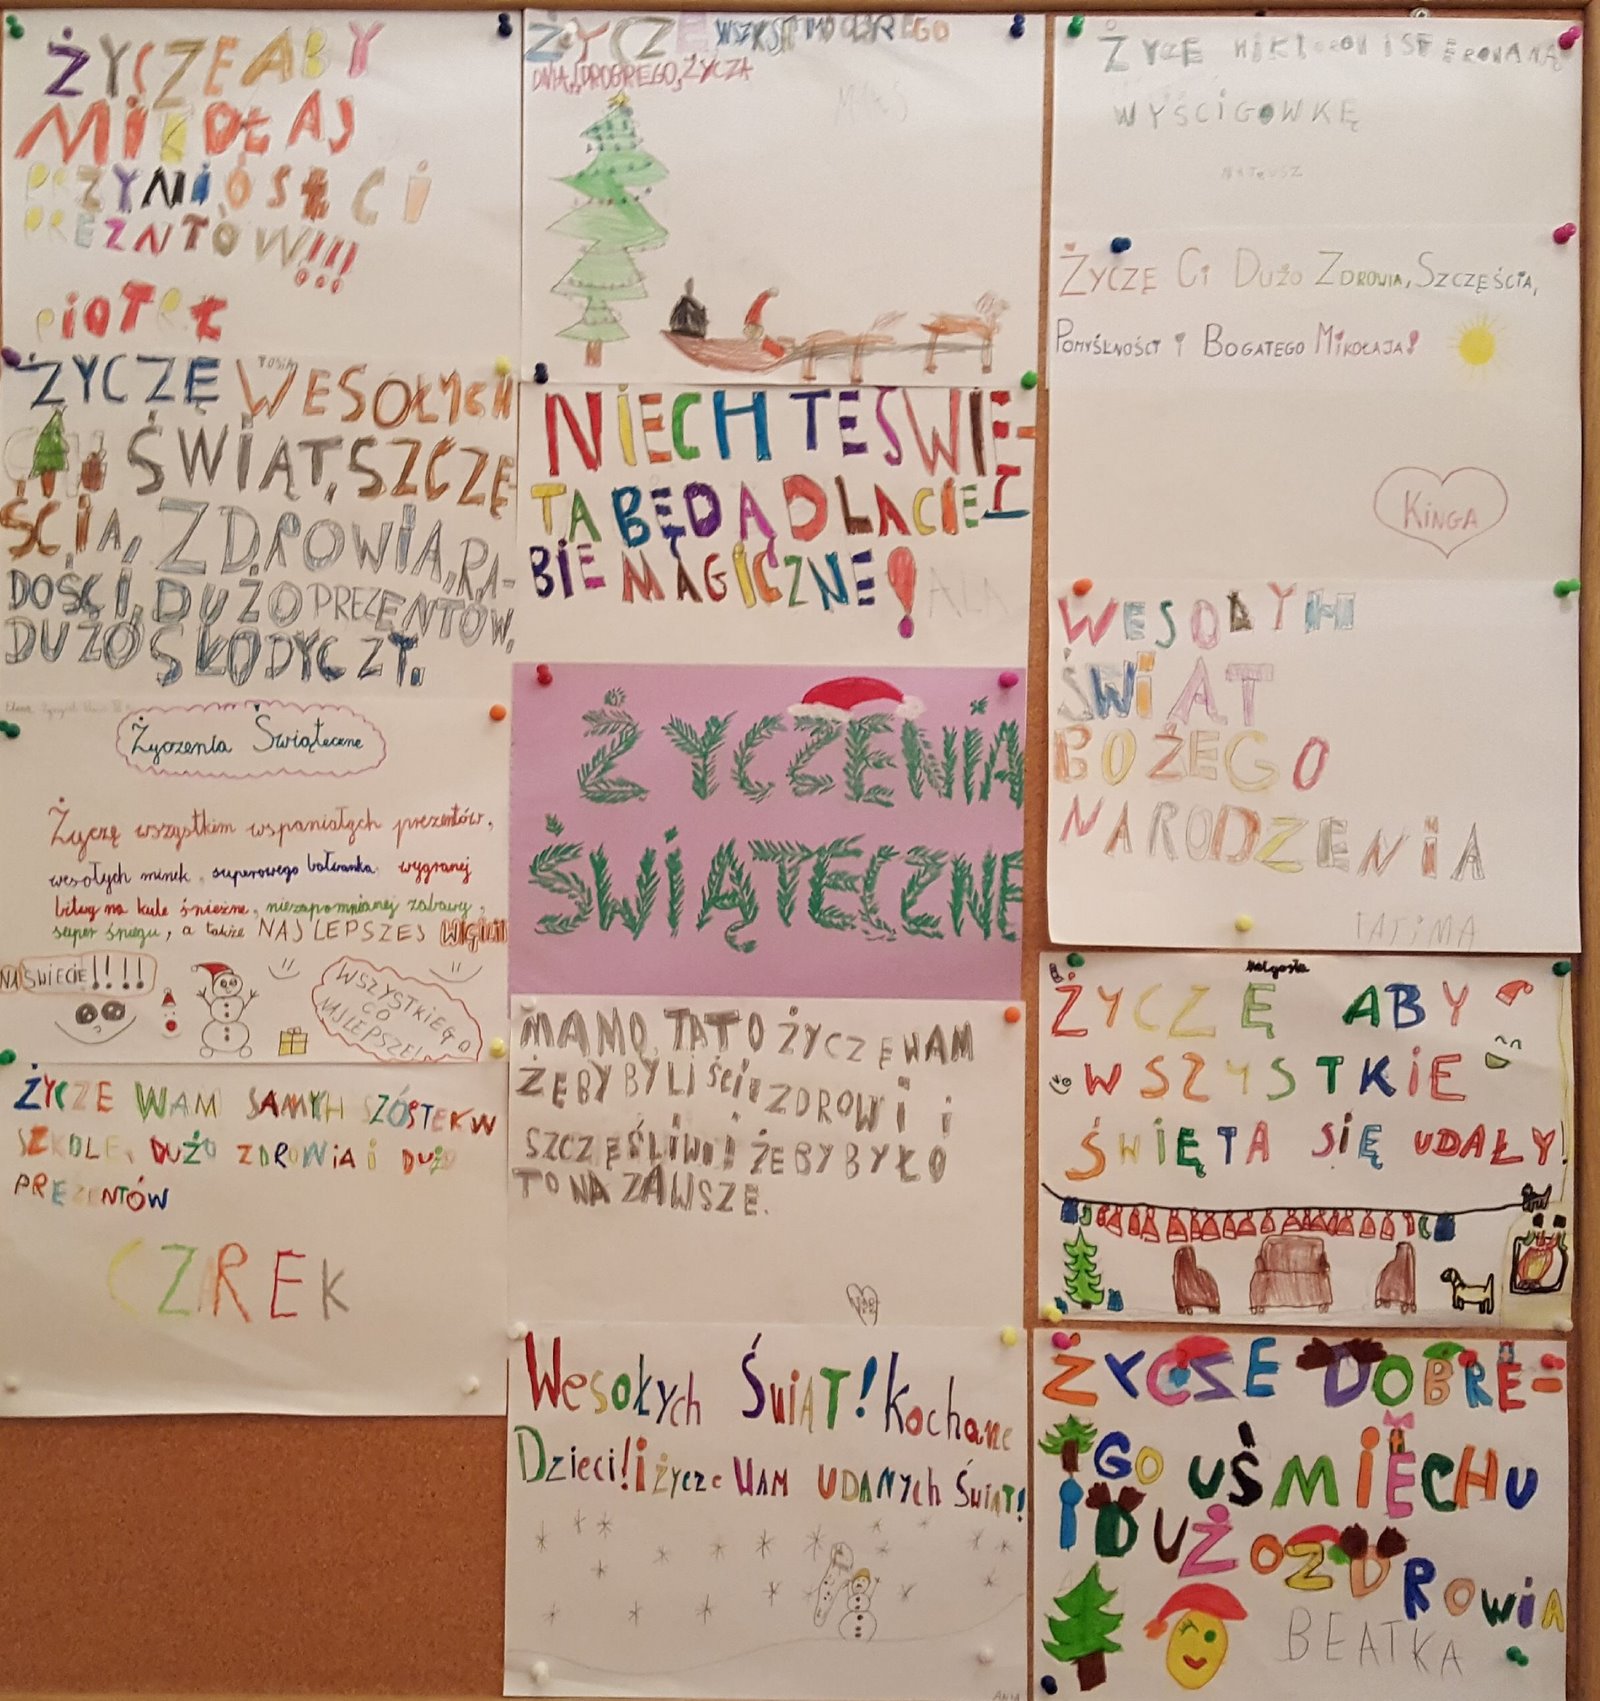 ŻYCZE ABY
MIKOŁAJ
PRZYNIÓSŁ CI
PREZNTÓW!!!
PIOTREK
ŻYCZE
DNIA, DROGREGO, ŻYCZA
MAKS
ŻYCZE
WYŚCIGOWKĘ
MATEUSZ
ŻYCZĘ CI DUŻO ZDROWIA, SZCZĘŚCIA,
POMYŚLNOŚCI I BOGATEGO MIKOŁAJA!
KINGA
TOSIA
ŻYCZĘ WESOŁYCH
ŚWIĄT, SZCZĘ-
ŚCIA, ZDROWIA, RA-
DOŚCI, DUŻO PREZENTÓW,
DUŻO SŁODYCZY.
NIECH TE ŚWIĘ-
TA BĘDĄ DLA CIE-
BIE MAGICZNE!
ALA
WESOŁYH
ŚWIĄT
BOŻEGO
NARODZENIA
FATIMA
ŻYCZENIA
ŚWIĄTECZNE
Życzenia Świąteczne
Życzę wszystkim wspaniałych prezentów,
wesołych minek, superowego bałwanka, wygranej
bitwy na kule śnieżne, niezapomnianej zabawy,
super śniegu, a także NAJLEPSZEJ WIGILII
NA ŚWIECIE!!!!
WSZYSTKIEGO
CO
NAJLEPSZE!
MAMO, TATO ŻYCZĘ WAM
ŻEBY BYLIŚCIE ZDROWI I
SZCZĘŚLIWI I ŻEBY BYŁO
TO NA ZAWSZE.
Małgosia
ŻYCZĘ ABY
WSZYSTKIE
ŚWIĘTA SIĘ UDAŁY!
ŻYCZE WAM SAMYH SZÓSTEK W
SZKOLE, DUŻO ZDROWIA I DUŻO
PREZENTÓW
CZAREK
Wesołych ŚwiąT! Kochane
Dzieci! i życze WAM UDANYch ŚwiąT!
ANIA
ŻYCZE DOBRE=
GO UŚMIECHU
I DUŻO ZD
ROWIA
BEATKA